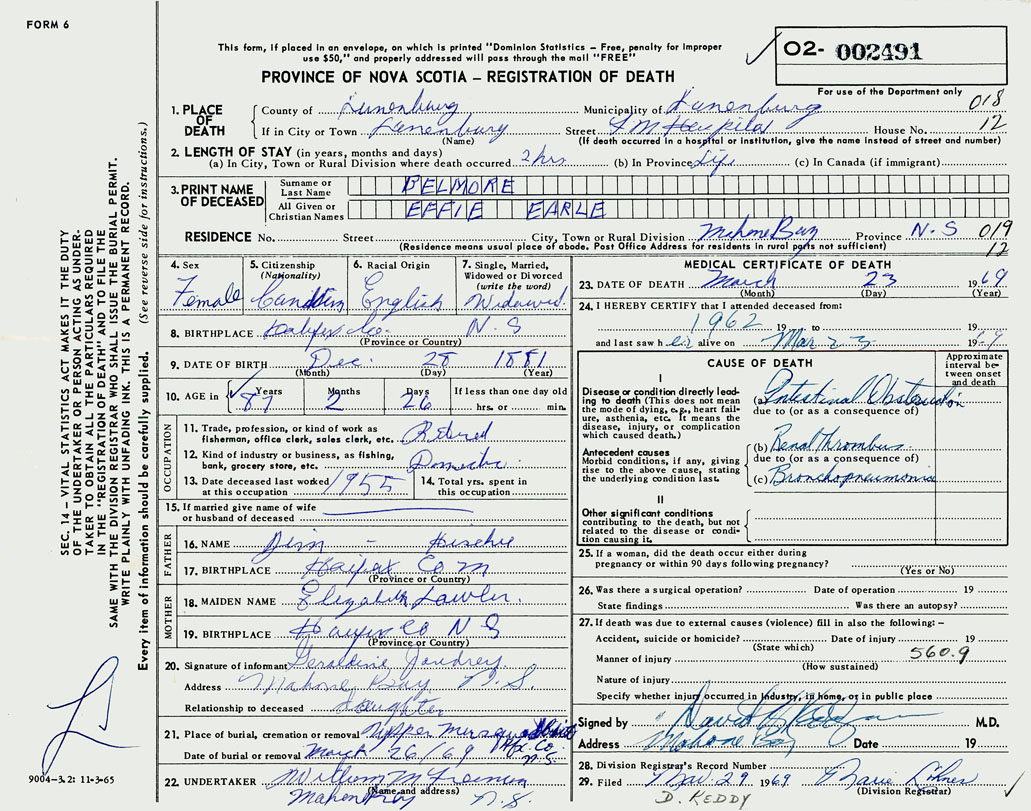 FORM 6
This form, if placed in an envelope, on which is printed "Dominion Statistics – Free, penalty for improper
use $50," and properly addressed will pass through the mail "FREE"
PROVINCE OF NOVA SCOTIA – REGISTRATION OF DEATH
O2- 002491
For use of the Department only
018
12
1. PLACE OF DEATH
County of Lunenburg Municipality of Lunenburg
If in City or Town Lunenburg Street F M Hospital House No.
(Name) (If death occurred in a hospital or institution, give the name instead of street and number)
2. LENGTH OF STAY (in years, months and days)
(a) In City, Town or Rural Division where death occurred 2 hrs (b) In Province Life (c) In Canada (if immigrant)
3. PRINT NAME OF DECEASED
Surname or Last Name BELMORE
All Given or Christian Names EFFIE EARLE
RESIDENCE No. Street City, Town or Rural Division Mahone Bay Province N.S 019
(Residence means usual place of abode. Post Office Address for residents in rural parts not sufficient) 12
4. Sex Female
5. Citizenship (Nationality) Canadian
6. Racial Origin English
7. Single, Married, Widowed or Divorced (write the word) Widowed
8. BIRTHPLACE Halifax Co. N.S
(Province or Country)
9. DATE OF BIRTH Dec. 28 1881
(Month) (Day) (Year)
10. AGE in Years 87 Months 2 Days 26 If less than one day old hrs. or min.
OCCUPATION
11. Trade, profession, or kind of work as fisherman, office clerk, sales clerk, etc. Retired
12. Kind of industry or business, as fishing, bank, grocery store, etc. Domestic
13. Date deceased last worked at this occupation 1955
14. Total yrs. spent in this occupation
15. If married give name of wife or husband of deceased
FATHER
16. NAME Jim –
17. BIRTHPLACE Halifax Co
(Province or Country)
MOTHER
18. MAIDEN NAME Elizabeth Lawler.
19. BIRTHPLACE Halifax Co N S
(Province or Country)
20. Signature of informant Geraldine Joudrey
Address Mahone Bay N.S.
Relationship to deceased daughter
21. Place of burial, cremation or removal Upper Hfx. Co. N.S.
Date of burial or removal March 26/69
22. UNDERTAKER William M
(Name and address)
Mahone Bay N.S.
MEDICAL CERTIFICATE OF DEATH
23. DATE OF DEATH March 23 1969
(Month) (Day) (Year)
24. I HEREBY CERTIFY that I attended deceased from:
1962 19 to 19
and last saw her alive on Mar 23 1969
CAUSE OF DEATH
Approximate interval between onset and death
I
Disease or condition directly leading to death (This does not mean the mode of dying, e.g., heart failure, asthenia, etc. It means the disease, injury, or complication which caused death.)
(a) Intestinal Obstruction
due to (or as a consequence of)
Antecedent causes
Morbid conditions, if any, giving rise to the above cause, stating the underlying condition last.
(b) Renal Thrombus
due to (or as a consequence of)
(c) Bronchopneumonia
II
Other significant conditions contributing to the death, but not related to the disease or condition causing it.
25. If a woman, did the death occur either during pregnancy or within 90 days following pregnancy?
(Yes or No)
26. Was there a surgical operation? Date of operation 19
State findings Was there an autopsy?
27. If death was due to external causes (violence) fill in also the following: –
Accident, suicide or homicide? Date of injury 19
(State which)
Manner of injury 560.9
(How sustained)
Nature of injury
Specify whether injury occurred in industry, in home, or in public place
Signed by M.D.
Address Mahone Bay Date 19
28. Division Registrar's Record Number
29. Filed Mar. 29 1969 Marie
(Division Registrar)
D. KEDDY
9004-3.2: 11-3-65
SEC. 14 – VITAL STATISTICS ACT MAKES IT THE DUTY
OF THE UNDERTAKER OR PERSON ACTING AS UNDER-
TAKER TO OBTAIN ALL THE PARTICULARS REQUIRED
IN THE "REGISTRATION OF DEATH" AND TO FILE THE
SAME WITH THE DIVISION REGISTRAR WHO SHALL ISSUE THE BURIAL PERMIT.
WRITE PLAINLY WITH UNFADING INK. THIS IS A PERMANENT RECORD.
Every item of information should be carefully supplied. (See reverse side for instructions.)